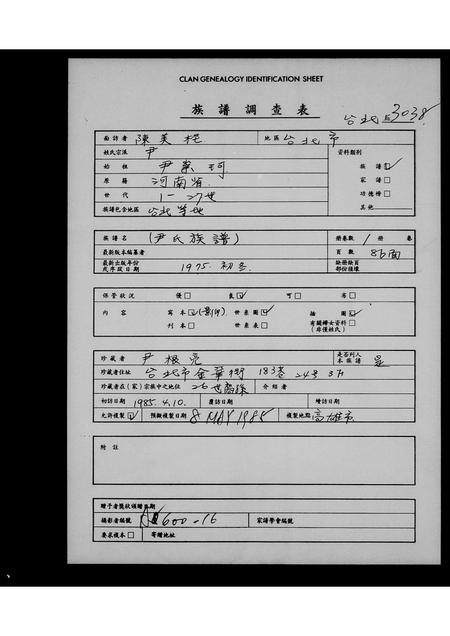 CLAN GENEALOGY IDENTIFICATION SHEET
族譜調查表
台北 3038
面訪者 陳美 地區 台北市
姓氏宗派 尹 資料類別
始祖 尹 珂 族譜 ☑
原籍 河南省 家譜 □
世代 1-27世 功德榜 □
族譜包含地區 台北等地 其他
族譜名 (尹氏族譜) 冊卷數 1 冊 卷
最新版本編纂者 頁數 86面
最新出版年份或序跋日期 1975. 初冬 缺冊缺頁部份複壞
保管狀況 優 □ 良 ☑ 可 □ 劣 □
內容 寫本 ☑ (影印) 世系圖 ☑ 插圖 ☑
刊本 □ 世系表 □ 有關婦女資料 □ (非僅姓氏)
珍藏者 尹根亮 是否列入本族譜 是
珍藏者住址 台北市金華街183巷24号3F
珍藏者在(家)宗族中之地位 26世裔孫 介紹者
初訪日期 1985.4.10. 覆訪日期 增訪日期
允許複製 ☑ 預擬複製日期 8 MAY 1985 複製地點 高雄市
附註
贈予者獎狀頒贈日期
攝影者編號 600-16 家譜學會編號
要求複本 □ 寄贈地址